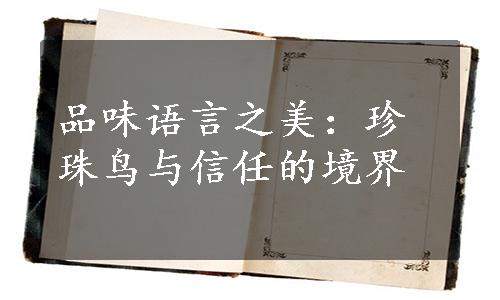 品味语言之美：珍
珠鸟与信任的境界